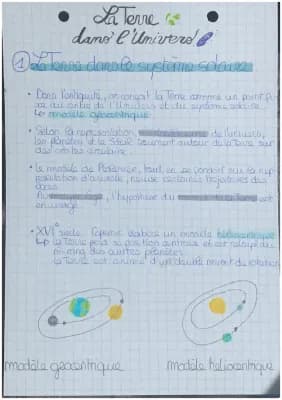 La Terre
dans l'Univers
① La Terre dans le système solaire
• Dans l'antiquité, on conçoit la Terme comme un point fix
au centre de l'Univers et du système solaire.
Le modèle géocentrique
• Selon la représentation, de l'univers,
les planètes et le Soleil tournent autour de la Terre sur
des orbites circulaire.
• Le modèle de Ptolémée, tout en se fondant sur la
représentation d'Aristote, certaines trajectoires des
, l'hypothèse du est
envisagé
• XVIᵉ siècle Copernic élabore un modèle héliocentrique
↳ la Terre perd sa position centrale et est
rang des autres planètes.
La Terre est animé d'un double mvmt de rotation
modèle géocentrique
modèle héliocentrique